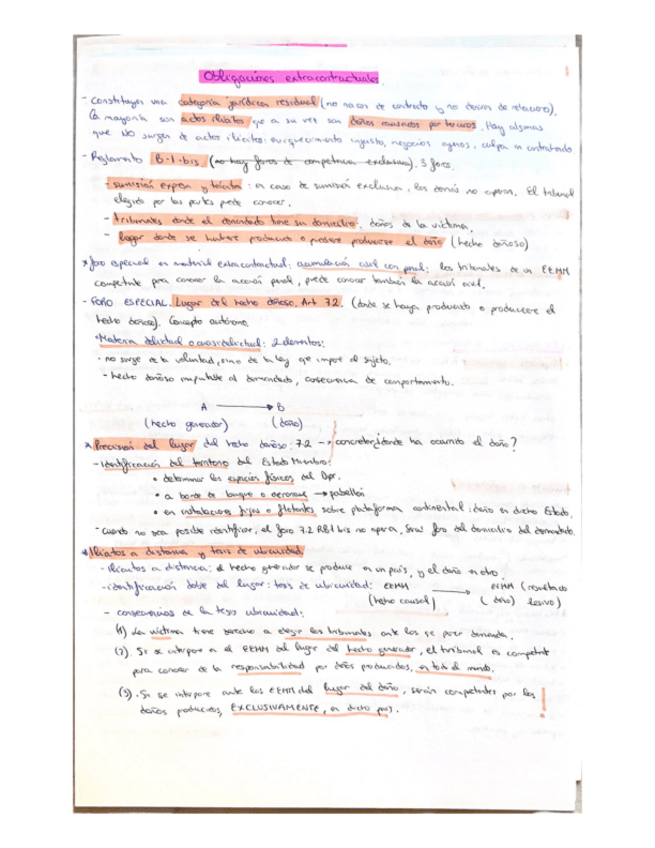 Obligaciones extracontractuales.
- Constituyen una categoría jurídica residual (no nacen de contrato y no derivan de relación).
La mayoría son actos ilícitos que a su vez son daños causados por terceros. Hay algunas
que NO surgen de actos ilícitos: enriquecimiento injusto, negocios ajenos, culpa in contrahendo
- Reglamento B-I-bis. (no hay foros de competencia exclusiva). 3 foros.
- sumisión expresa y tácita: en caso de sumisión exclusiva, los demás no operan. El tribunal
elegido por las partes puede conocer.
- tribunales donde el demandado tiene su domicilio, daños de la víctima.
- lugar donde se hubiere producido o pudiere producirse el daño (hecho dañoso)
* foro especial en materia extracontractual: acumulación civil con penal: los tribunales de un EEMM
competente para conocer la acción penal, puede conocer también la acción civil.
- FORO ESPECIAL. Lugar del hecho dañoso. Art 7.2. (donde se haya producido o produciere el
hecho dañoso). Concepto autónomo.
· Materia delictual o cuasidelictual: 2 elementos:
- no surge de la voluntad, sino de la ley que impone al sujeto.
- hecho dañoso imputable al demandado, consecuencia de comportamiento.
A → B
(hecho generador) (daño)
* Precisión del lugar del hecho dañoso: 7.2 → concretar ¿dónde ha ocurrido el daño?
- Identificación del territorio del Estado Miembro:
• determinar los espacios físicos del
• a bordo de buque o aeronave → pabellón
• en instalaciones fijas o flotantes sobre plataforma continental: daño en dicho Estado.
- cuando no sea posible identificar, el foro 7.2 RBI bis no opera. Será foro del domicilio del demandado.
* Ilícitos a distancia y tesis de ubicuidad
- Ilícitos a distancia: el hecho generador se produce en un país, y el daño en otro.
- identificación doble del lugar: tesis de ubicuidad: EEMM → EEMM (resultado
(hecho causal) (daño) lesivo)
- consecuencias de la tesis ubicuidad:
(1) La víctima tiene derecho a elegir los tribunales ante los que poner demanda.
(2). Si se interpone en el EEMM del lugar del hecho generador, el tribunal es competente
para conocer de la responsabilidad por daños producidos, en todo el mundo.
(3). Si se interpone ante los EEMM del lugar del daño, serán competentes por los
daños producidos, EXCLUSIVAMENTE, en dicho país.